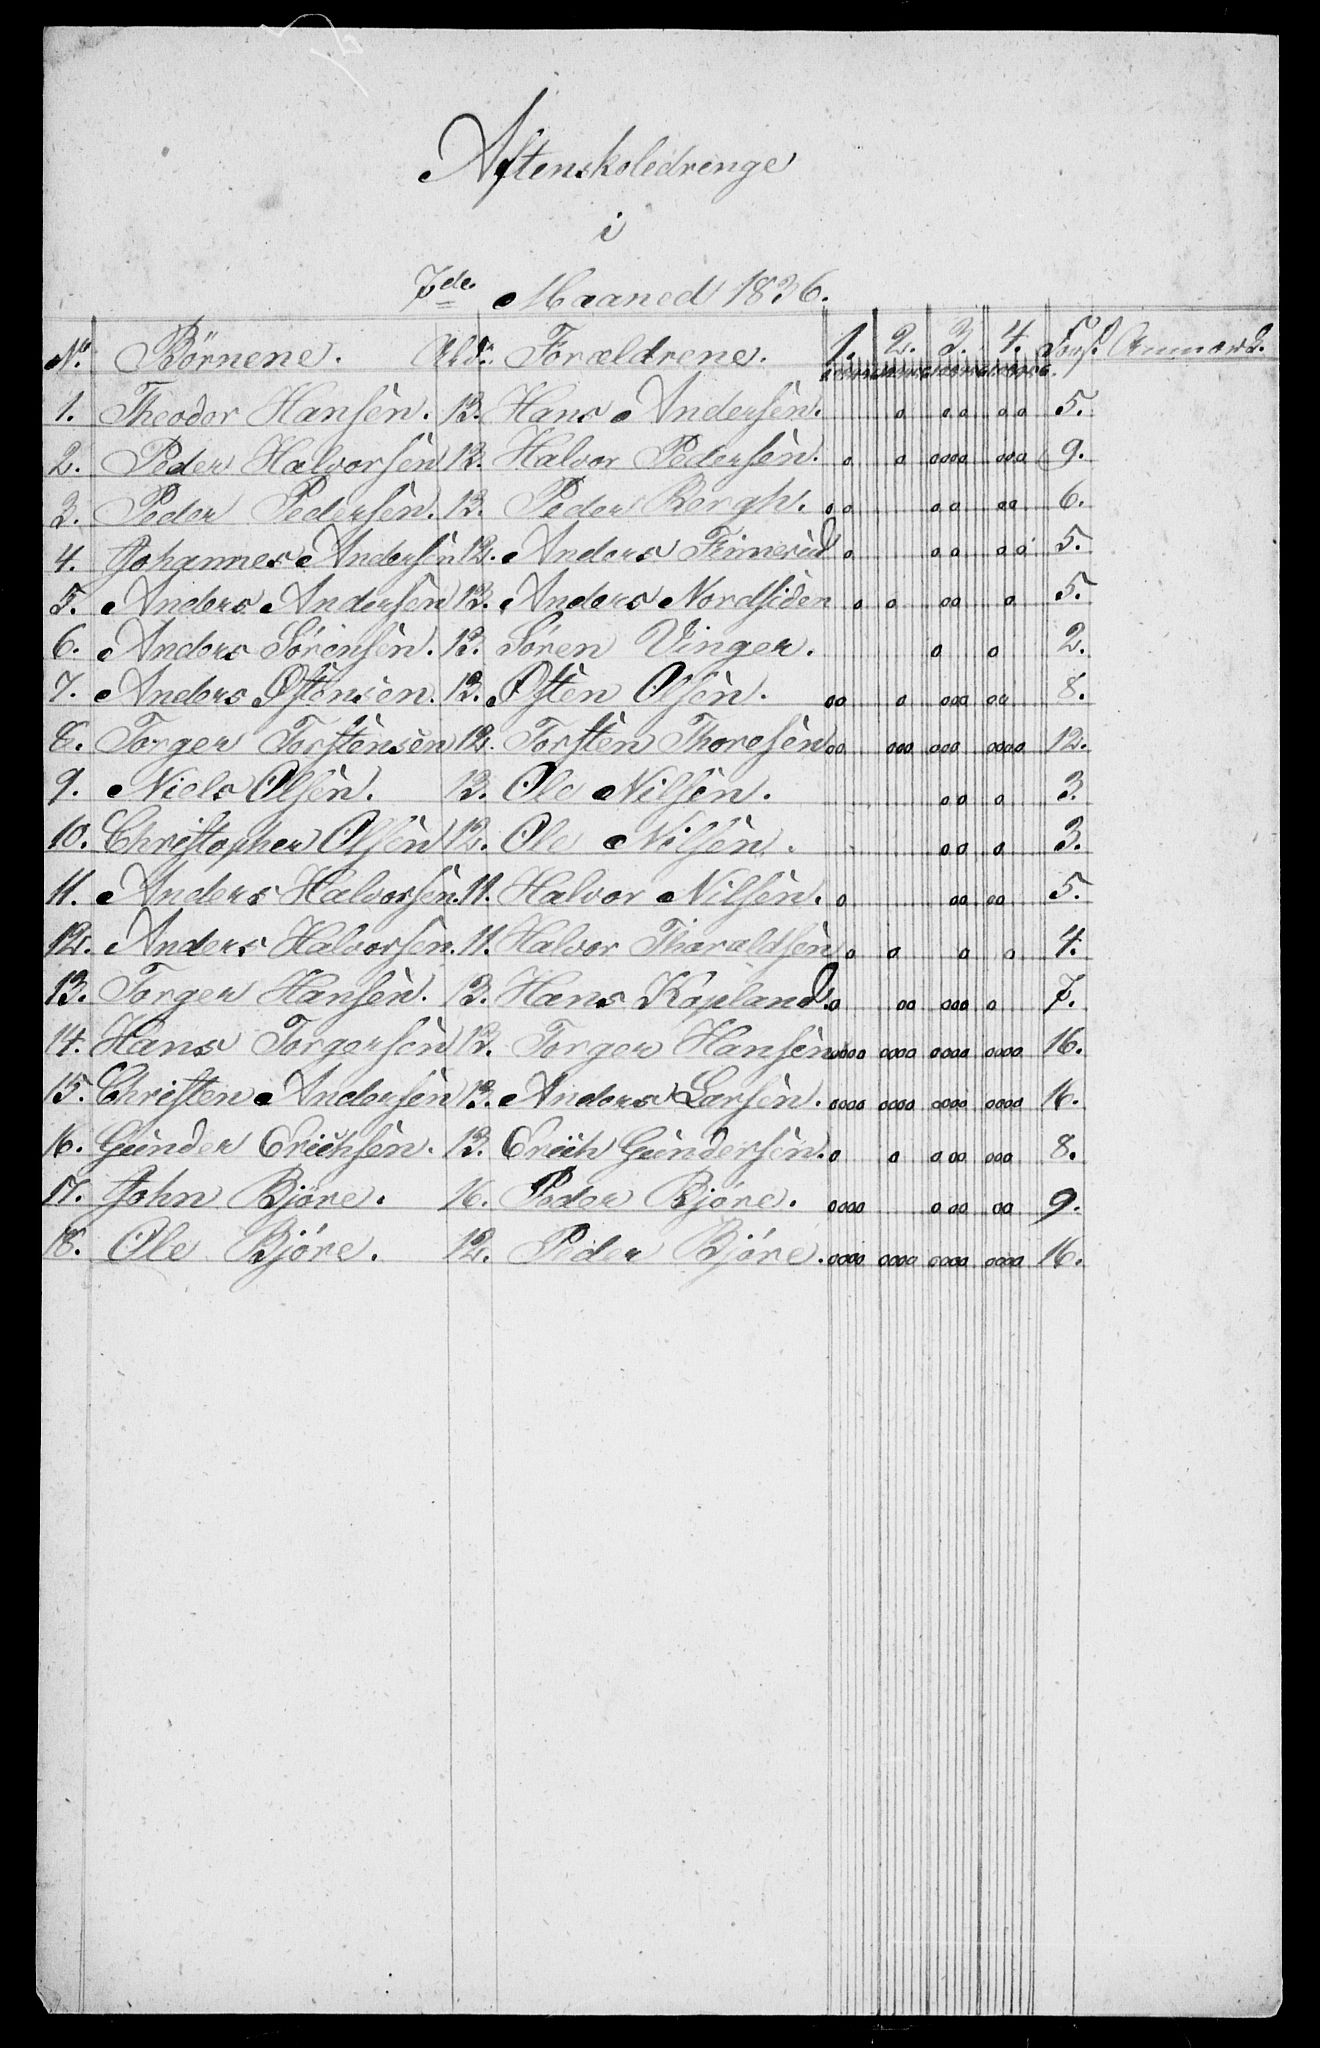 Aftenskoledrenge
i
7de Maaned 1836.
No. Børnene. Ald: Forældrene. 1. 2. 3. 4. Fors. Anmærk.
1. Theodor Hansen. 13. Hans Andersen. o oo oo 5.
2. Peder Halvorsen 13. Halvor Pedersen. o o oooo ooo 9.
3. Peder Pedersen. 13. Peder Bergh. oo oo oo 6.
4. Johannes Andersen 12. Anders Finnerud o oo oo 5.
5. Anders Andersen 13. Anders Nordsiden o o oo o 5.
6. Anders Sørensen. 12. Søren Vinger. o o 2.
7. Anders Østensen. 12. Østen Olsen. oo o ooo oo 8.
8. Torger Torstensen 12. Torsten Thoresen oo ooo ooo oooo 12.
9. Niels Olsen. 13. Ole Nilsen. oo o 3.
10. Christopher Olsen 12. Ole Nilsen. oo o 3.
11. Anders Halvorsen. 11. Halvor Nilsen. o oo oo 5.
12. Anders Halvorsen. 11. Halvor Tharaldsen o o o o 4.
13. Torger Hansen. 13. Hans Kapland. o oo ooo o 7.
14. Hans Torgersen 12. Torger Hansen oooo oooo oooo oooo 16.
15. Christen Andersen 13. Anders Larsen. oooo oooo oooo oooo 16.
16. Gunder Erichsen. 13. Erich Gundersen. o o ooo ooo 8.
17. John Bjøre. 16. Peder Bjøre. oooo ooo oo 9.
18. Ole Bjøre. 12. Peder Bjøre. oooo oooo oooo oooo 16.